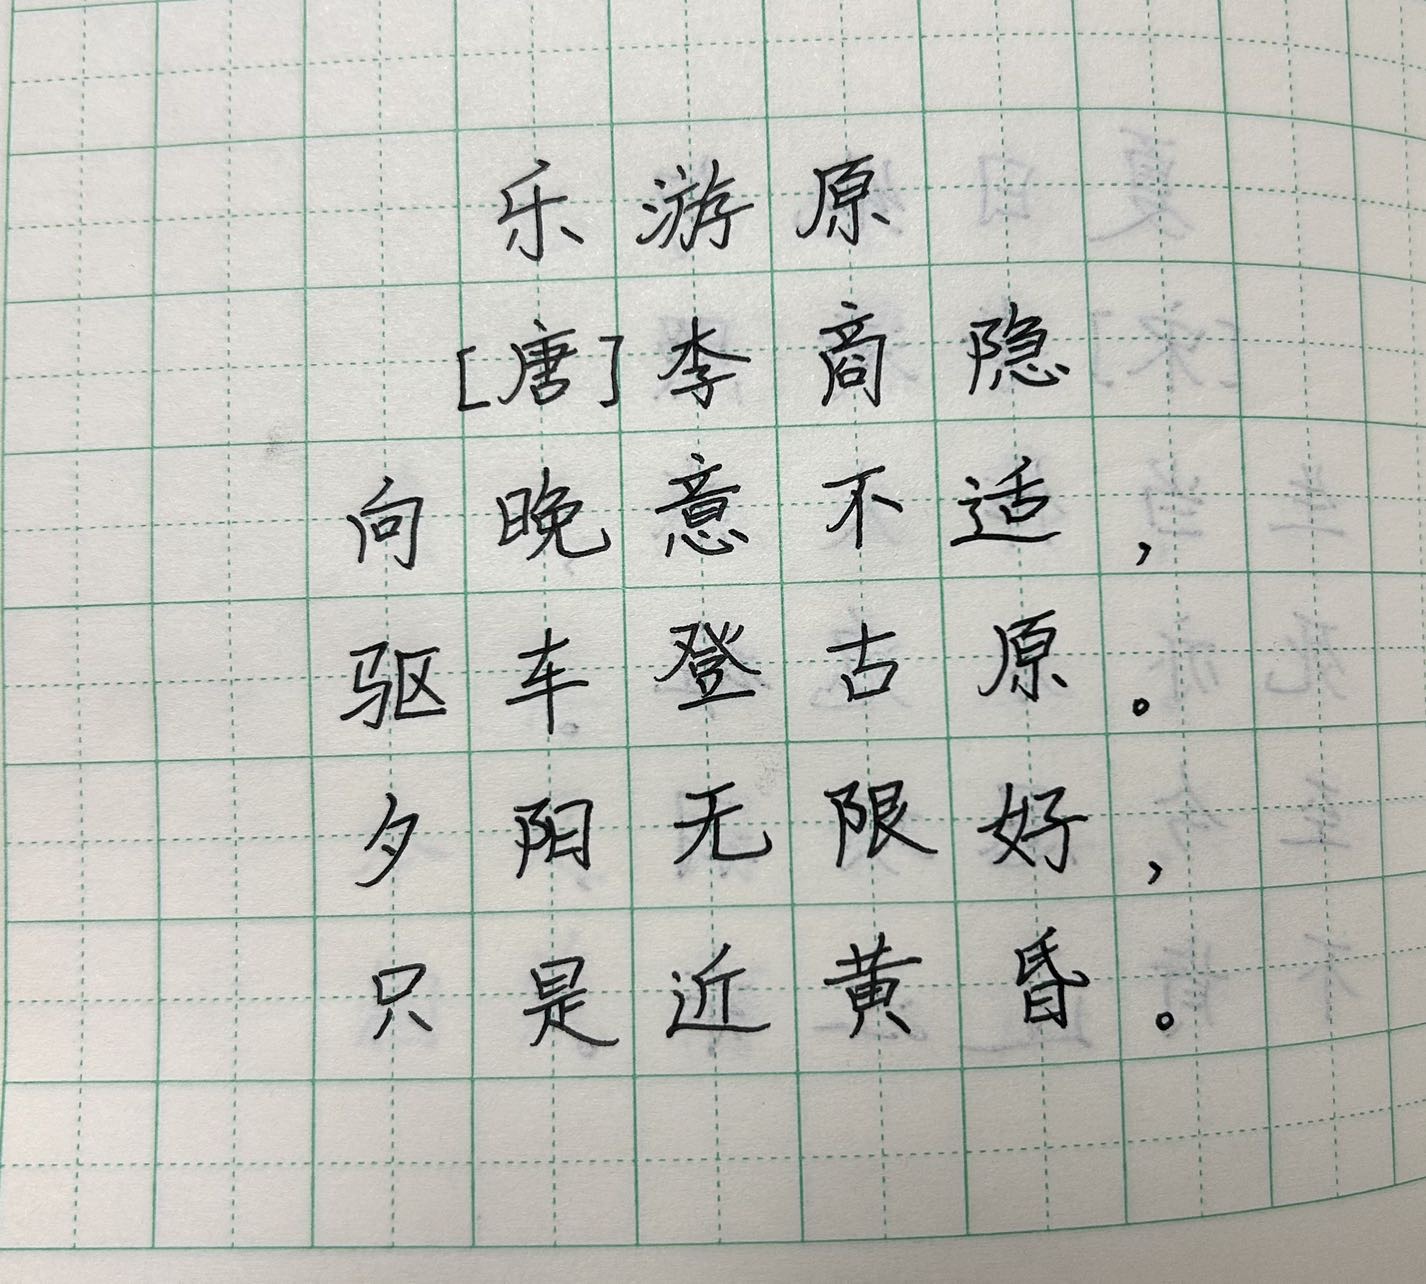 乐游原
[唐]李商隐
向晚意不适，
驱车登古原。
夕阳无限好，
只是近黄昏。